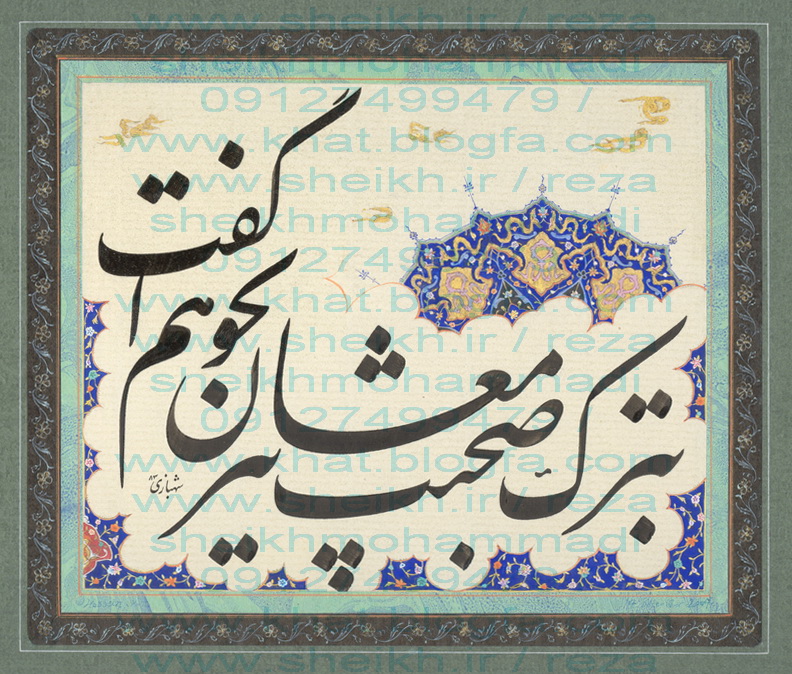 بترک صحبت پیر مغان نخواهم گفت
شهبازی ۸۳
www.sheikh.ir / reza
sheikhmohammadi
09127499479 /
www.khat.blogfa.com
www.sheikh.ir / reza
sheikhmohammadi
09127499479 /
www.khat.blogfa.com
www.sheikh.ir / reza
sheikhmohammadi
09127499479 /
www.khat.blogfa.com
www.sheikh.ir / reza
sheikhmohammadi
09127499479 /
www.khat.blogfa.com
www.sheikh.ir / reza